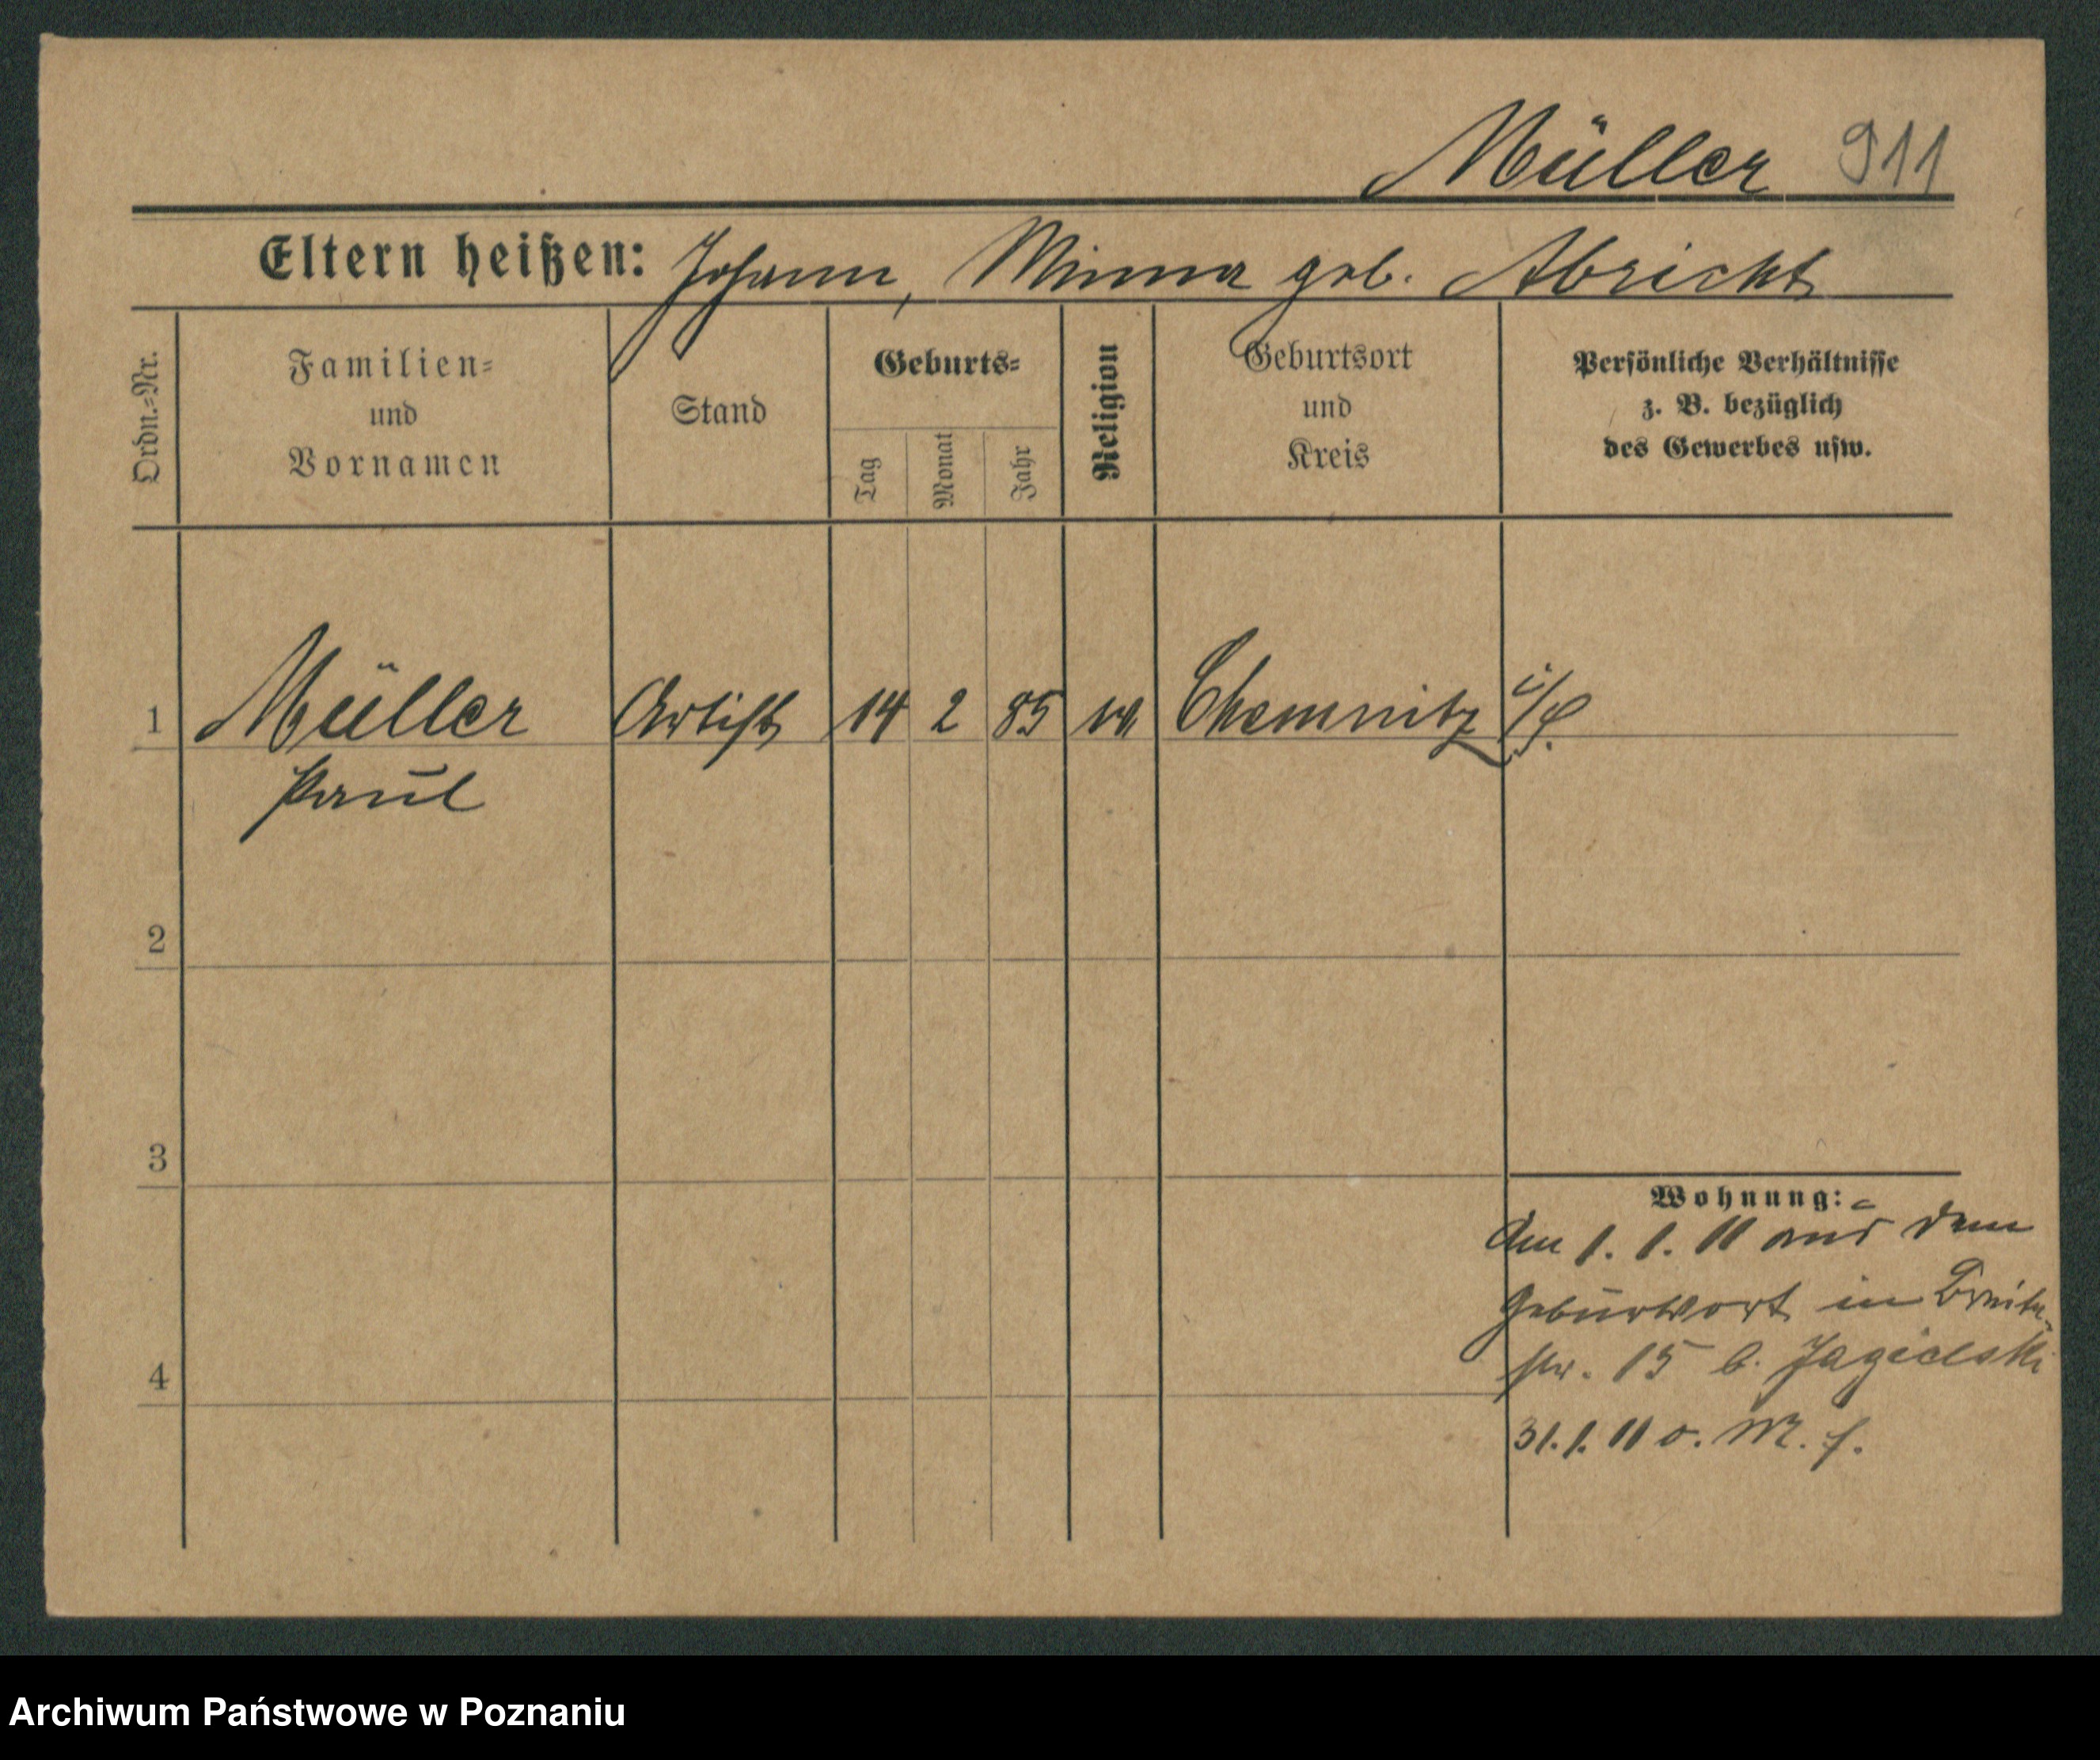 Müller 911
Eltern heißen: Johann, Minna geb. Abricht
Ordn.=Nr.
Familien=
und
Vornamen
Stand
Geburts=
Tag
Monat
Jahr
Religion
Geburtsort
und
Kreis
Persönliche Verhältnisse
z. B. bezüglich
des Gewerbes usw.
1 Müller Artist 14 2 85 Chemnitz i/S.
Paul
2
3
4
Wohnung:
Am 1. 1. 11 aus dem
Geburtsort in Breite-
str. 15 b. Jagielski
31. 1. 11 o. M. f.
Archiwum Państwowe w Poznaniu